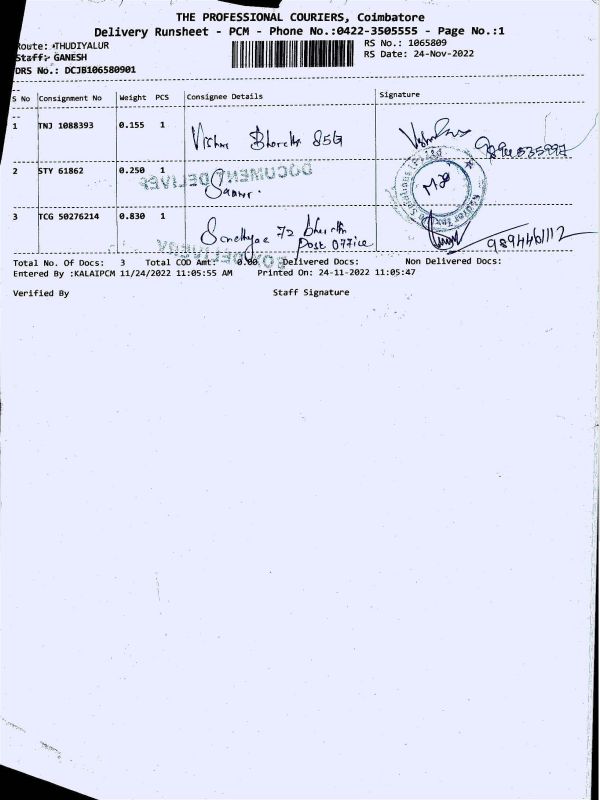 THE PROFESSIONAL COURIERS, Coimbatore
Delivery Runsheet - PCM - Phone No.:0422-3505555 - Page No.:1
Route: THUDIYALUR
RS No.: 1065809
Staff: GANESH
RS Date: 24-Nov-2022
DRS No.: DCJB106580901
S No Consignment No Weight PCS Consignee Details Signature
1 TNJ 1088393 0.155 1 85G
2 STY 61862 0.250 1
DOCUMENT DELIVER
3 TCG 50276214 0.830 1 72
Post Office 9894461112
Total No. Of Docs: 3 Total COD Amt: 0.00 Delivered Docs: Non Delivered Docs:
Entered By :KALAIPCM 11/24/2022 11:05:55 AM Printed On: 24-11-2022 11:05:47
Verified By Staff Signature